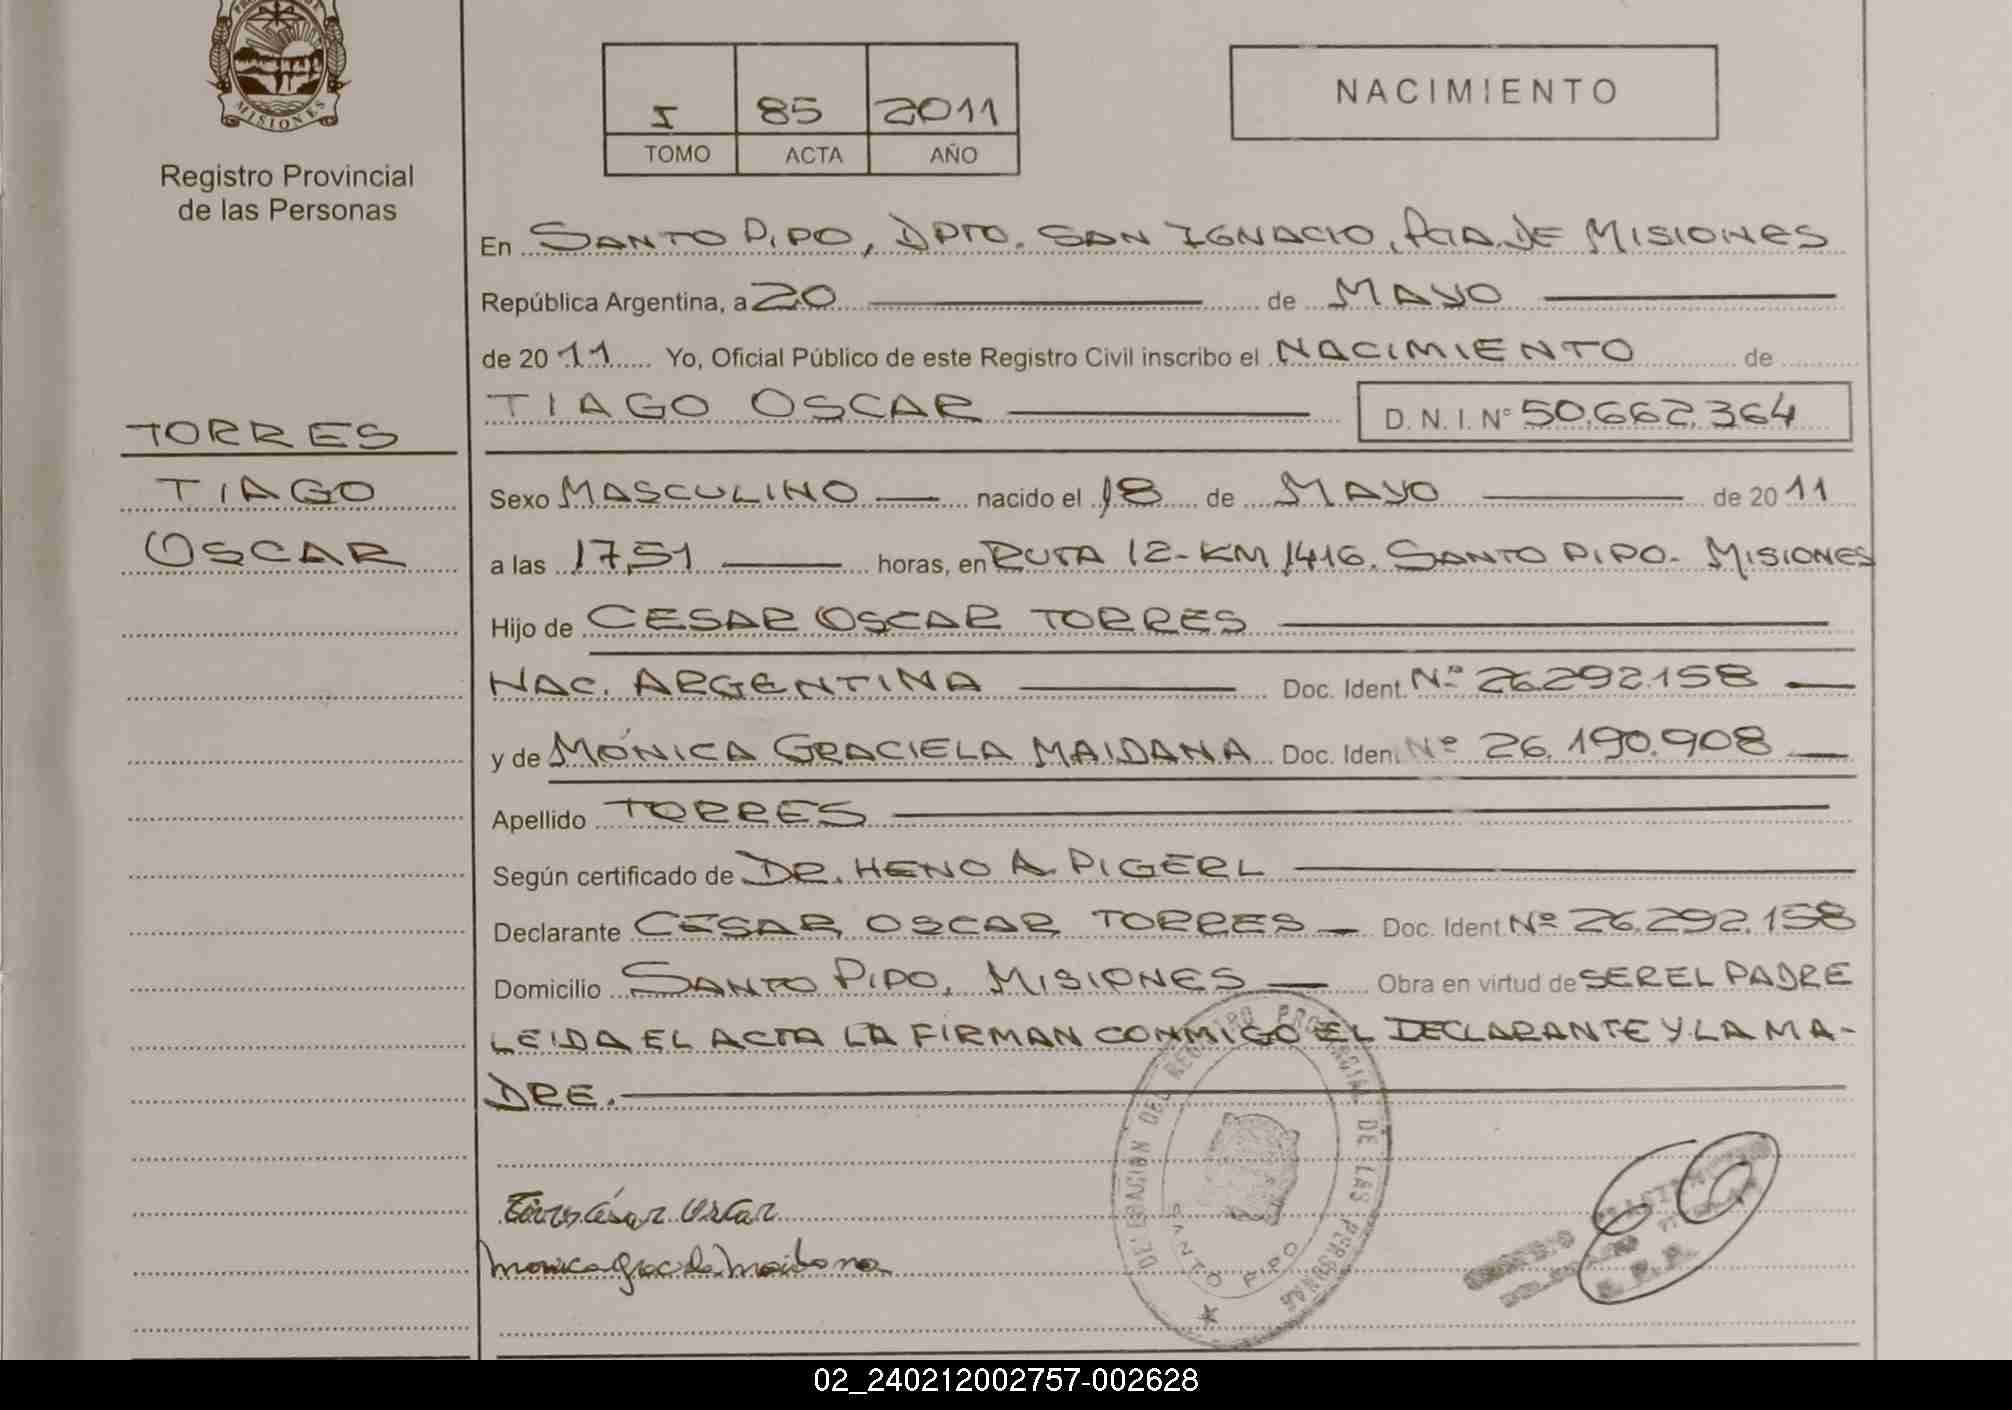 MISIONES
Registro Provincial
de las Personas
I 85 2011
TOMO ACTA AÑO
NACIMIENTO
En SANTO PIPO, DPTO. SAN IGNACIO, PCIA. DE MISIONES
República Argentina, a 20 de MAYO
de 2011 Yo, Oficial Público de este Registro Civil inscribo el NACIMIENTO de
TIAGO OSCAR D. N. I. Nº 50.662.364
TORRES
TIAGO
OSCAR
Sexo MASCULINO nacido el 18 de MAYO de 2011
a las 17,51 horas, en RUTA 12-KM 1416. SANTO PIPO- MISIONES
Hijo de CESAR OSCAR TORRES
NAC. ARGENTINA Doc. Ident. Nº 26.292.158
y de MÓNICA GRACIELA MAIDANA Doc. Iden. Nº 26.190.908
Apellido TORRES
Según certificado de DR. HENO A. PIGERL
Declarante CESAR OSCAR TORRES Doc. Ident Nº 26.292.158
Domicilio SANTO PIPO. MISIONES Obra en virtud de SER EL PADRE
LEIDA EL ACTA LA FIRMAN CONMIGO EL DECLARANTE Y LA MA-
DRE.
DELEGACION DEL REGISTRO PROVINCIAL DE LAS PERSONAS
SANTO PIPO
Torres César Oscar
Monica Graciela Maidana
02_240212002757-002628